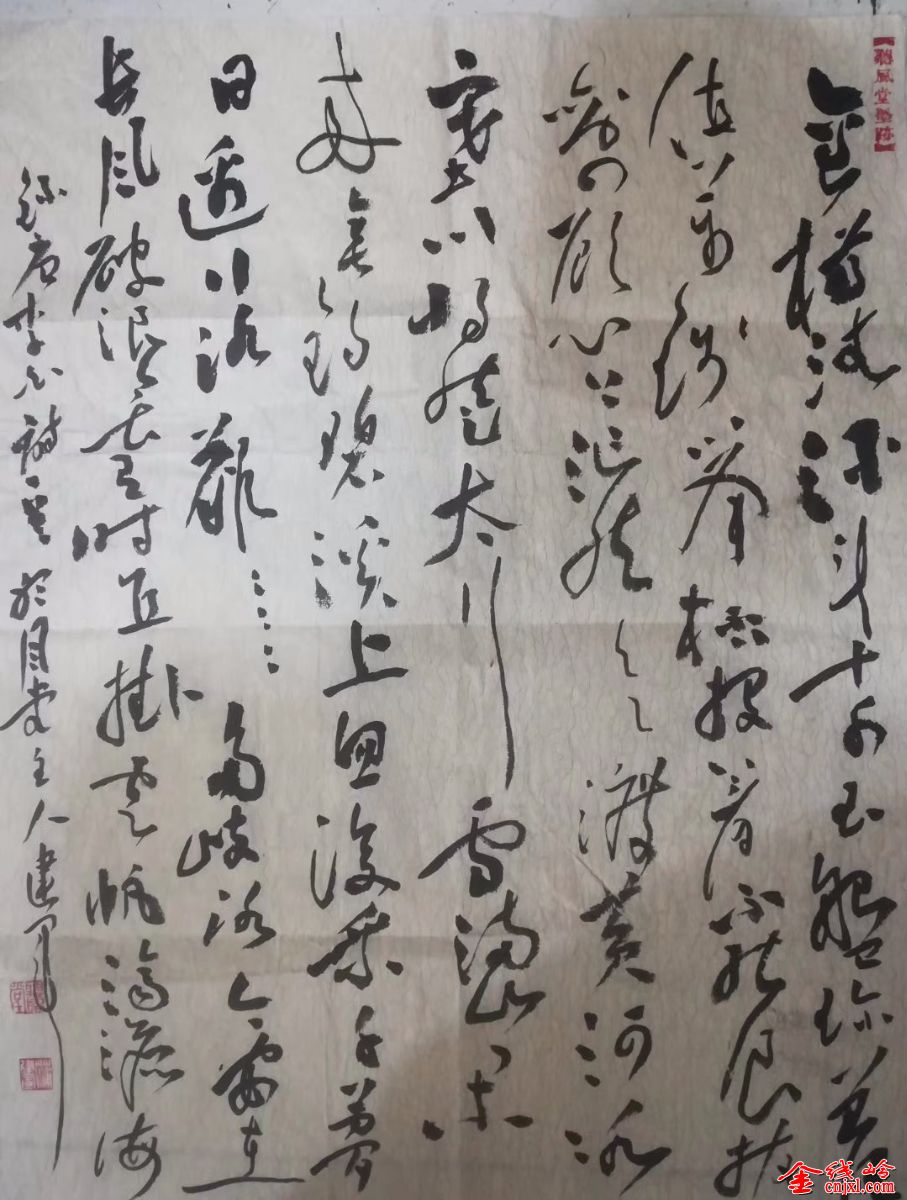 【聽風堂墨跡】
金樽清酒斗十千玉盤珍羞
值萬錢停杯投箸不能食拔
劍四顧心茫然欲渡黃河冰
塞川將登太行雪滿山閑來
垂釣碧溪上忽復乘舟夢
日邊行路難……多歧路今安在
長風破浪會有時直掛雲帆濟滄海
錄唐李白詩 於風堂主人建軍
金线岭
cnjxl.com